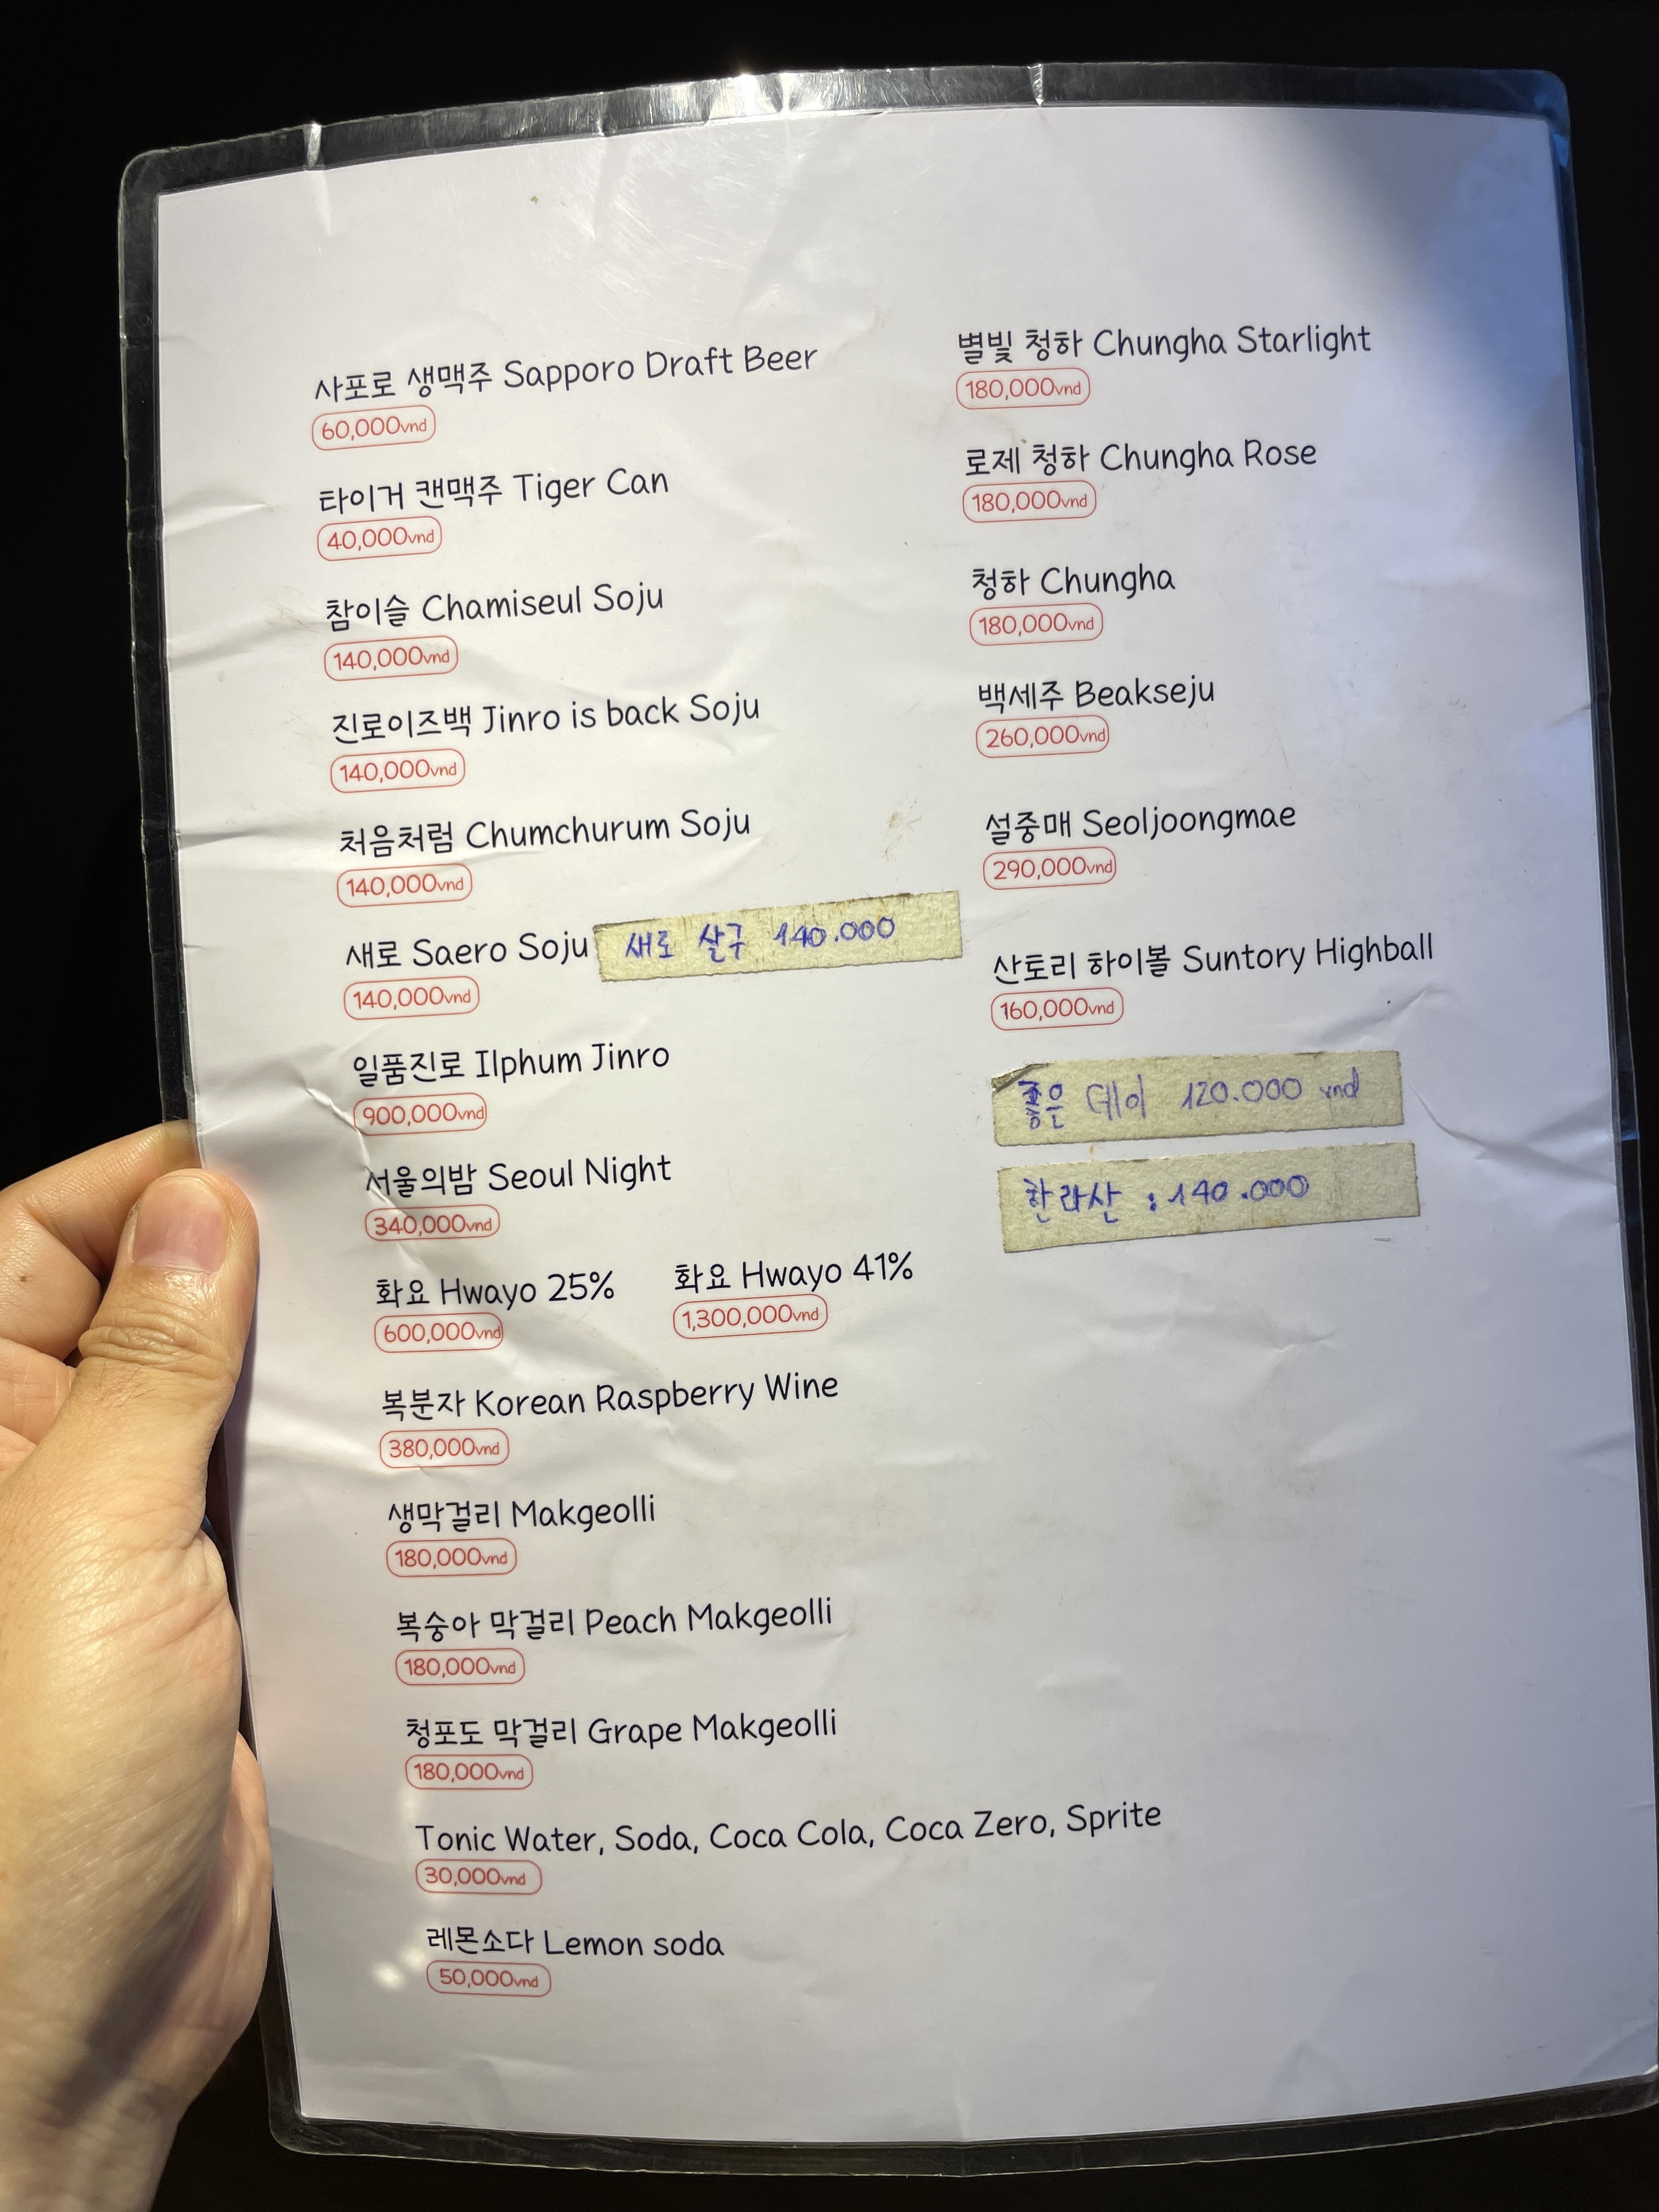 사포로 생맥주 Sapporo Draft Beer
60,000vnd
타이거 캔맥주 Tiger Can
40,000vnd
참이슬 Chamiseul Soju
140,000vnd
진로이즈백 Jinro is back Soju
140,000vnd
처음처럼 Chumchurum Soju
140,000vnd
새로 Saero Soju 새로 살구 140.000
140,000vnd
일품진로 Ilphum Jinro
900,000vnd
서울의밤 Seoul Night
340,000vnd
화요 Hwayo 25% 화요 Hwayo 41%
600,000vnd 1,300,000vnd
복분자 Korean Raspberry Wine
380,000vnd
생막걸리 Makgeolli
180,000vnd
복숭아 막걸리 Peach Makgeolli
180,000vnd
청포도 막걸리 Grape Makgeolli
180,000vnd
Tonic Water, Soda, Coca Cola, Coca Zero, Sprite
30,000vnd
레몬소다 Lemon soda
50,000vnd
별빛 청하 Chungha Starlight
180,000vnd
로제 청하 Chungha Rose
180,000vnd
청하 Chungha
180,000vnd
백세주 Beakseju
260,000vnd
설중매 Seoljoongmae
290,000vnd
산토리 하이볼 Suntory Highball
160,000vnd
좋은 데이 120.000 vnd
한라산 : 140.000